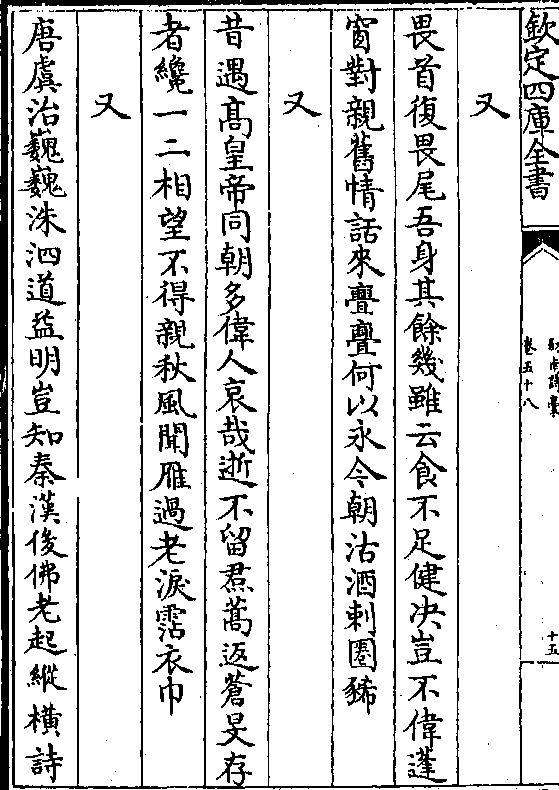 欽定四庫全書
劒南詩藁
卷五十八
十五
又
畏首復畏尾吾身其餘幾雖云食不足健决豈不偉蓬
窗對親舊情話來亹亹何以永今朝沽酒刺圈豨
又
昔遇髙皇帝同朝多偉人哀哉逝不留焄蒿返蒼旻存
者纔一二相望不得親秋風聞雁過老淚霑衣巾
又
唐虞治巍巍洙泗道益明豈知秦漢後佛老起縱橫詩